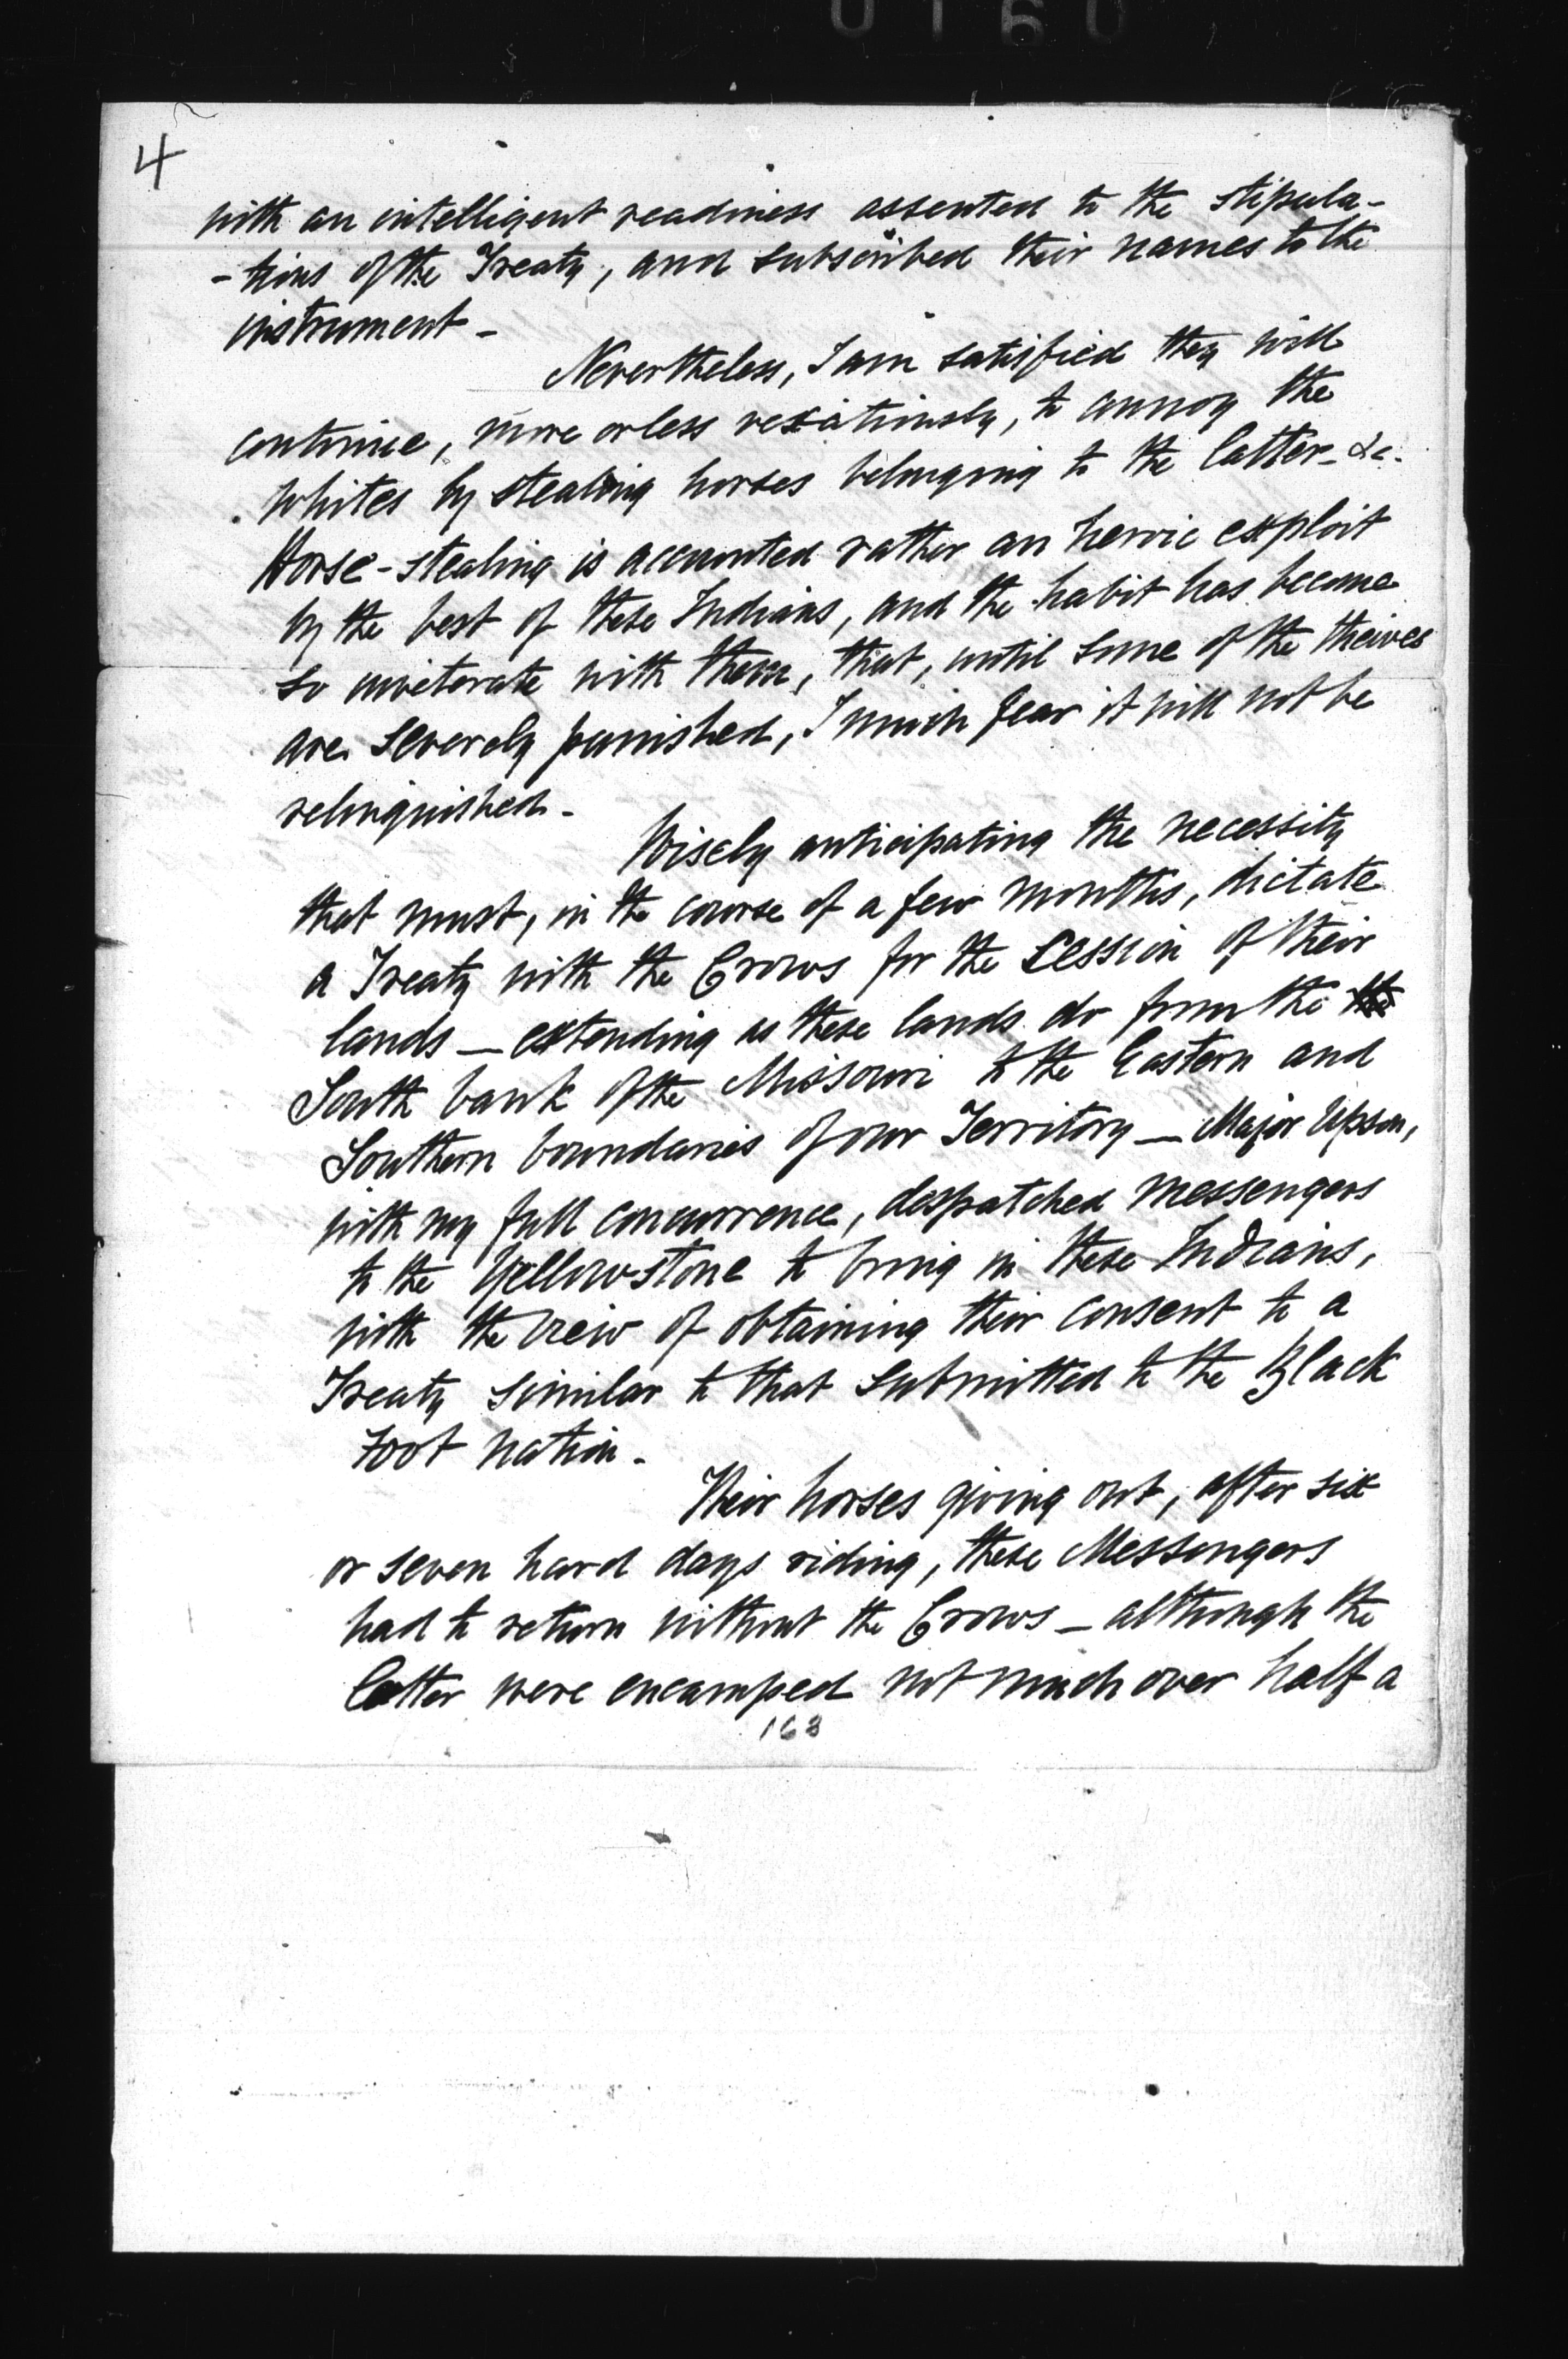 4
with an intelligent readiness assented to the stipula-
-tions of the Treaty, and subscribed their names to the
instrument -
Nevertheless, I am satisfied they will
continue, more or less vexatiously, to annoy the
whites by stealing horses belonging to the latter - &c.
Horse-stealing is accounted rather an heroic exploit
by the best of these Indians, and the habit has become
so inveterate with them, that, until some of the theives
are severely punished, I much fear it will not be
relinquished -
Wisely anticipating the necessity
that must, in the course of a few months, dictate
a Treaty with the Crows for the cession of their
lands — extending as these lands do from the the
South bank of the Missouri to the Eastern and
Southern boundaries of our Territory — Major Upson,
with my full concurrence, despatched messengers
to the Yellowstone to bring in these Indians,
with the view of obtaining their consent to a
Treaty similar to that submitted to the Black
Foot Nation -
Their horses giving out, after six
or seven hard days riding, these Messengers
had to return without the Crows - although the
latter were encamped not much over half a
168